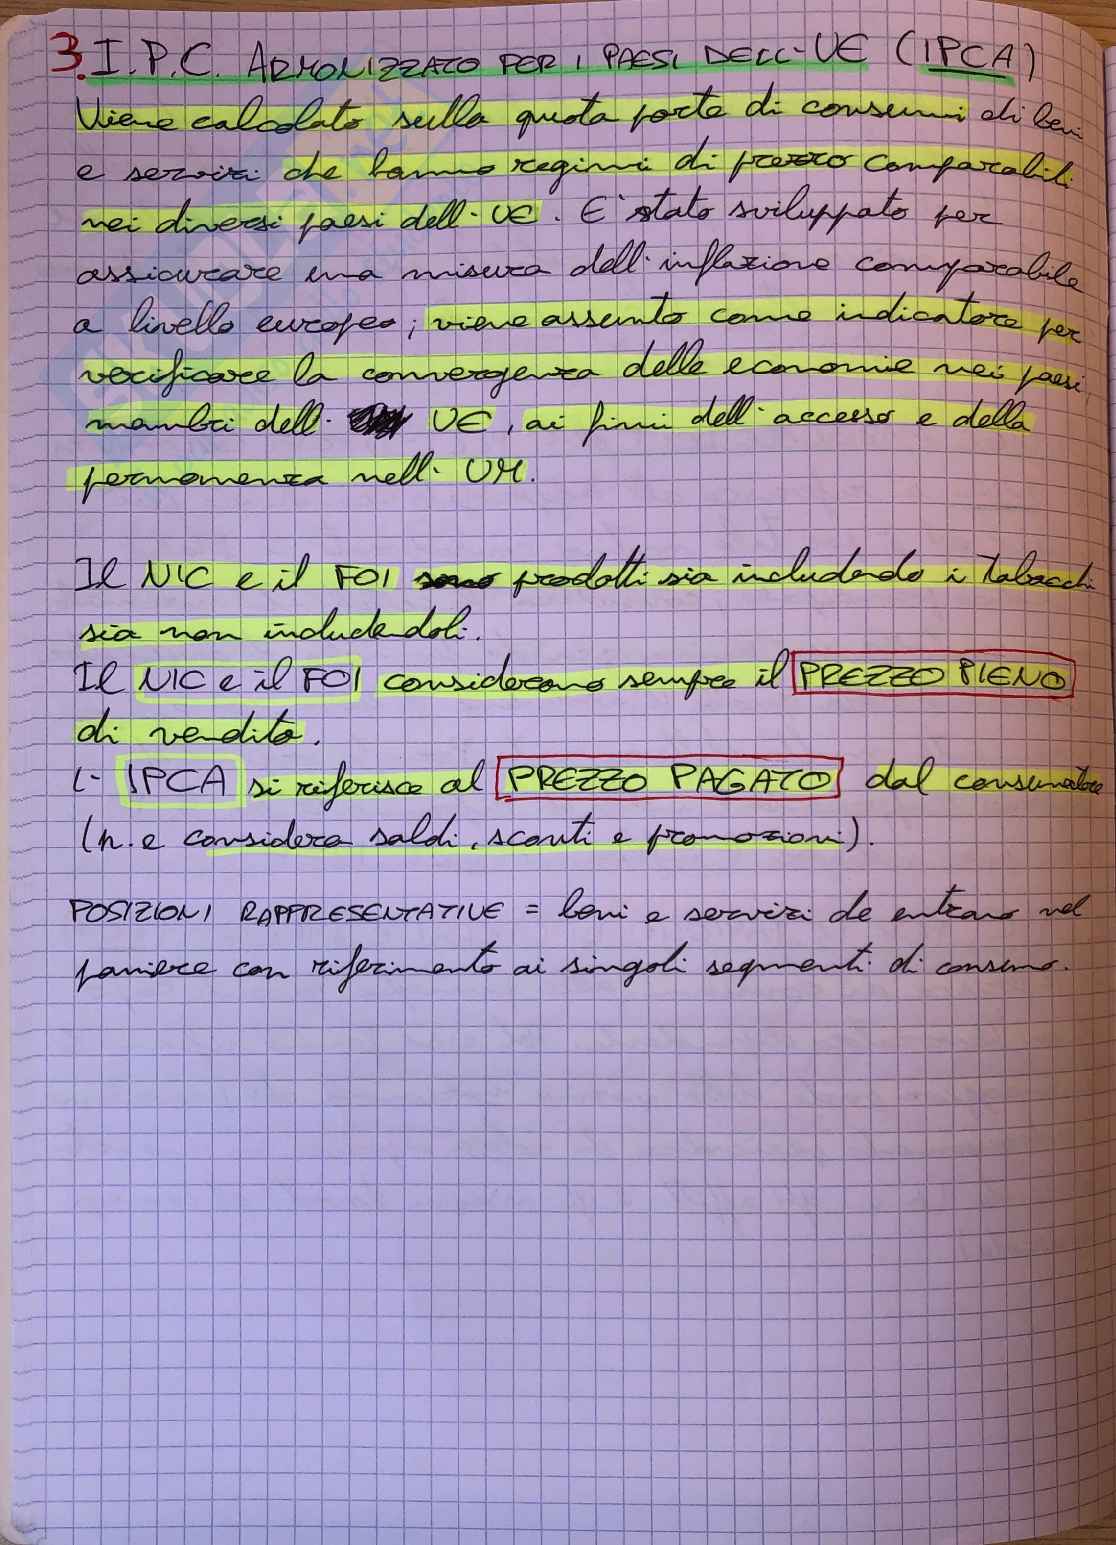 3. I.P.C. ARMONIZZATO PER I PAESI DELL'UE (IPCA)
Viene calcolato sulla quota parte di consumi di beni
e servizi che hanno regimi di prezzo comparabili
nei diversi paesi dell'UE. E' stato sviluppato per
assicurare una misura dell'inflazione comparabile
a livello europeo; viene assunto come indicatore per
verificare la convergenza delle economie nei paesi
membri dell' UE, ai fini dell'accesso e della
permanenza nell' UM.
Il NIC e il FOI sono prodotti sia includendo i tabacchi
sia non includendoli.
Il NIC e il FOI considerano sempre il PREZZO PIENO
di vendita.
L' IPCA si riferisce al PREZZO PAGATO dal consumatore
(n.e considera saldi, sconti e promozioni).
POSIZIONI RAPPRESENTATIVE = beni e servizi de entrano nel
paniere con riferimento ai singoli segmenti di consumo.